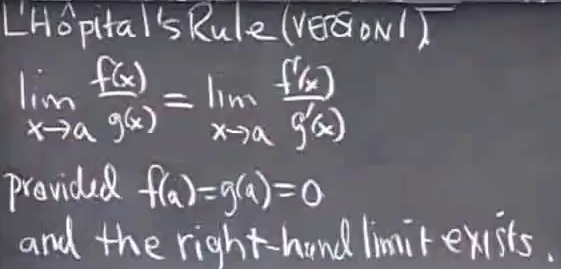 L'Hôpital's Rule (VERSION 1)
lim x→a f(x)/g(x) = lim x→a f'(x)/g'(x)
provided f(a)=g(a)=0
and the right-hand limit exists.